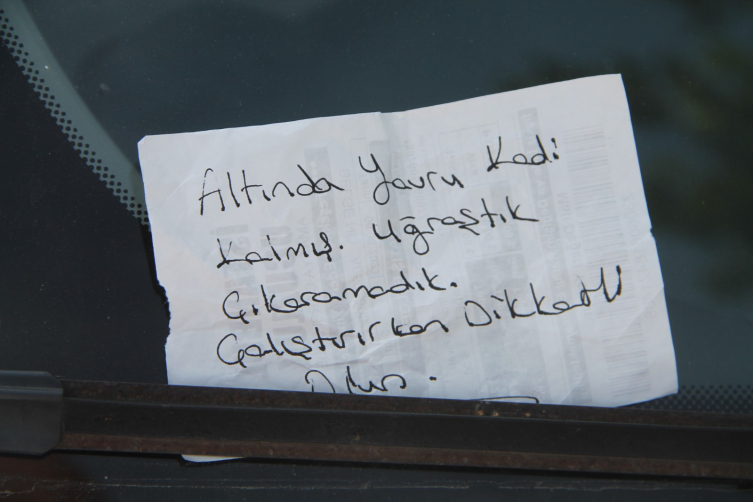 Altında Yavru Kedi
kalmış. Uğraştık
Çıkaramadık.
Çalıştırırken Dikkatli
Olun.